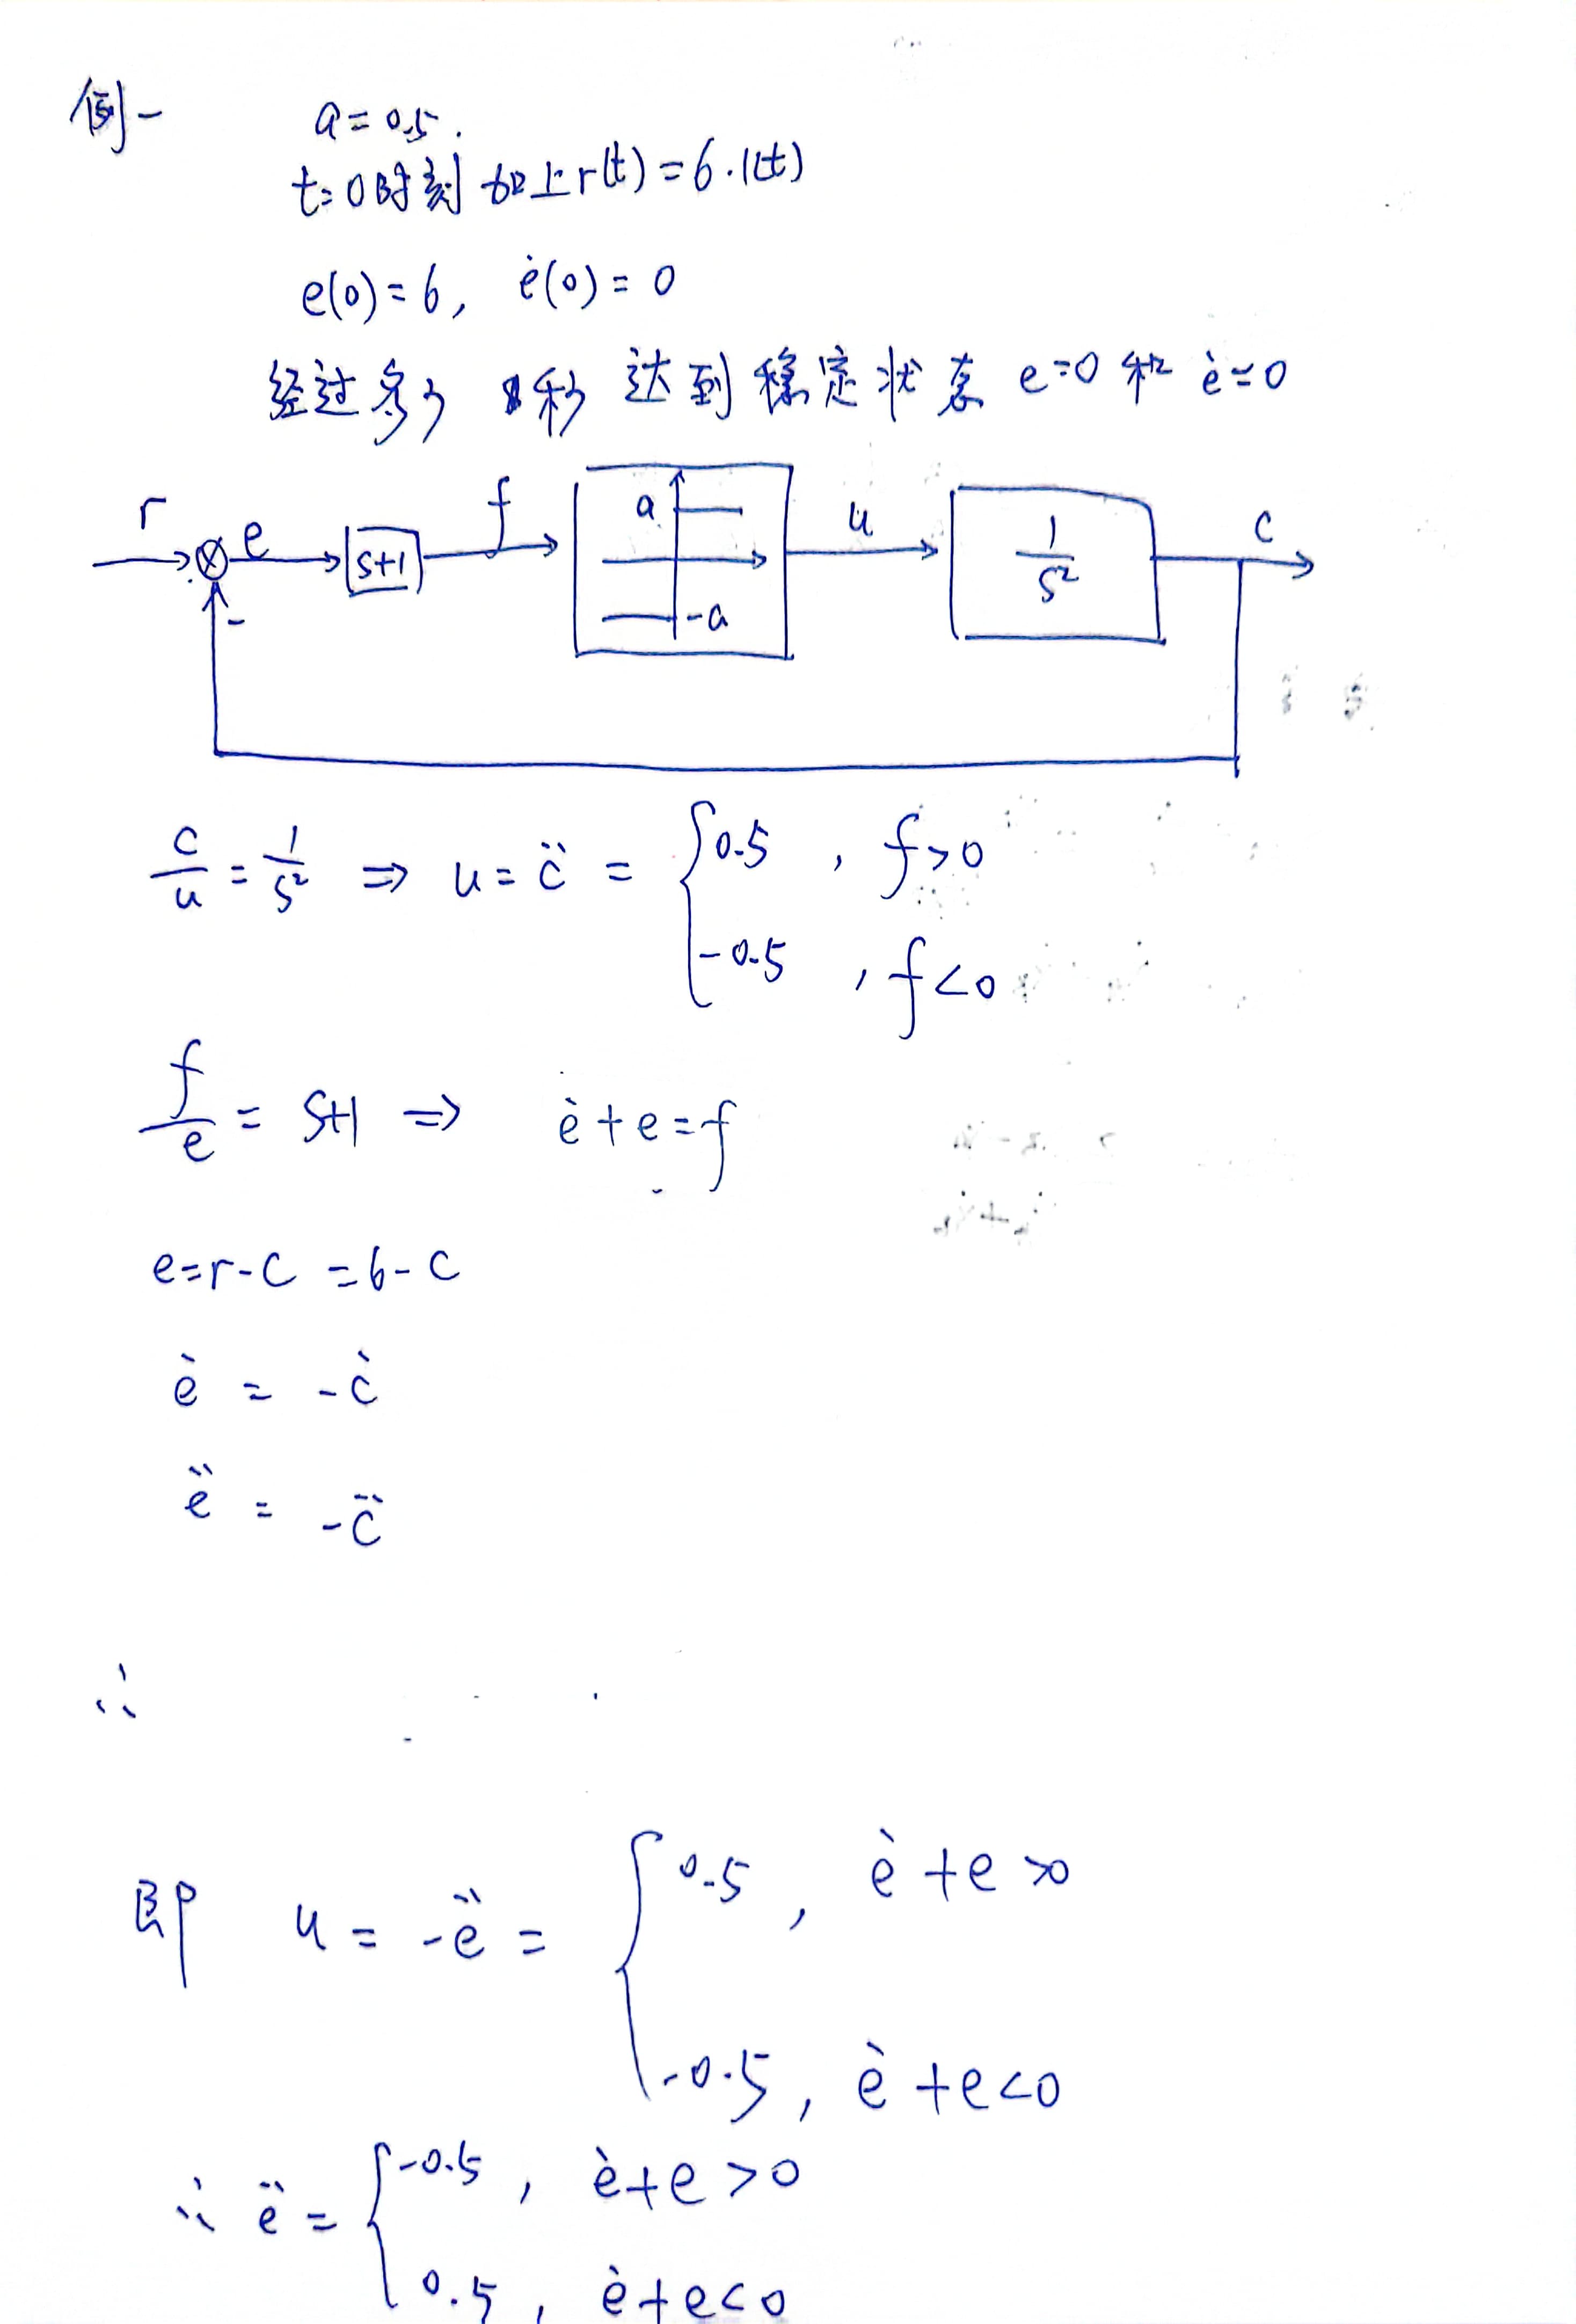 例一
a=0.5.
t=0时刻加上r(t)=6·1(t)
e(0)=6, ė(0)=0
经过多少秒达到稳定状态 e=0 和 ė=0
r e s+1 f a -a u 1/s² c
-
c/u = 1/s² ⇒ u = c̈ = { 0.5 , f>0
-0.5 , f<0
f/e = s+1 ⇒ ė+e=f
e=r-c =6-c
ė = -ċ
ë = -c̈
∴
即 u = -ë = { 0.5 , ė+e>0
-0.5 , ė+e<0
∴ ë = { -0.5 , ė+e>0
0.5 , ė+e<0